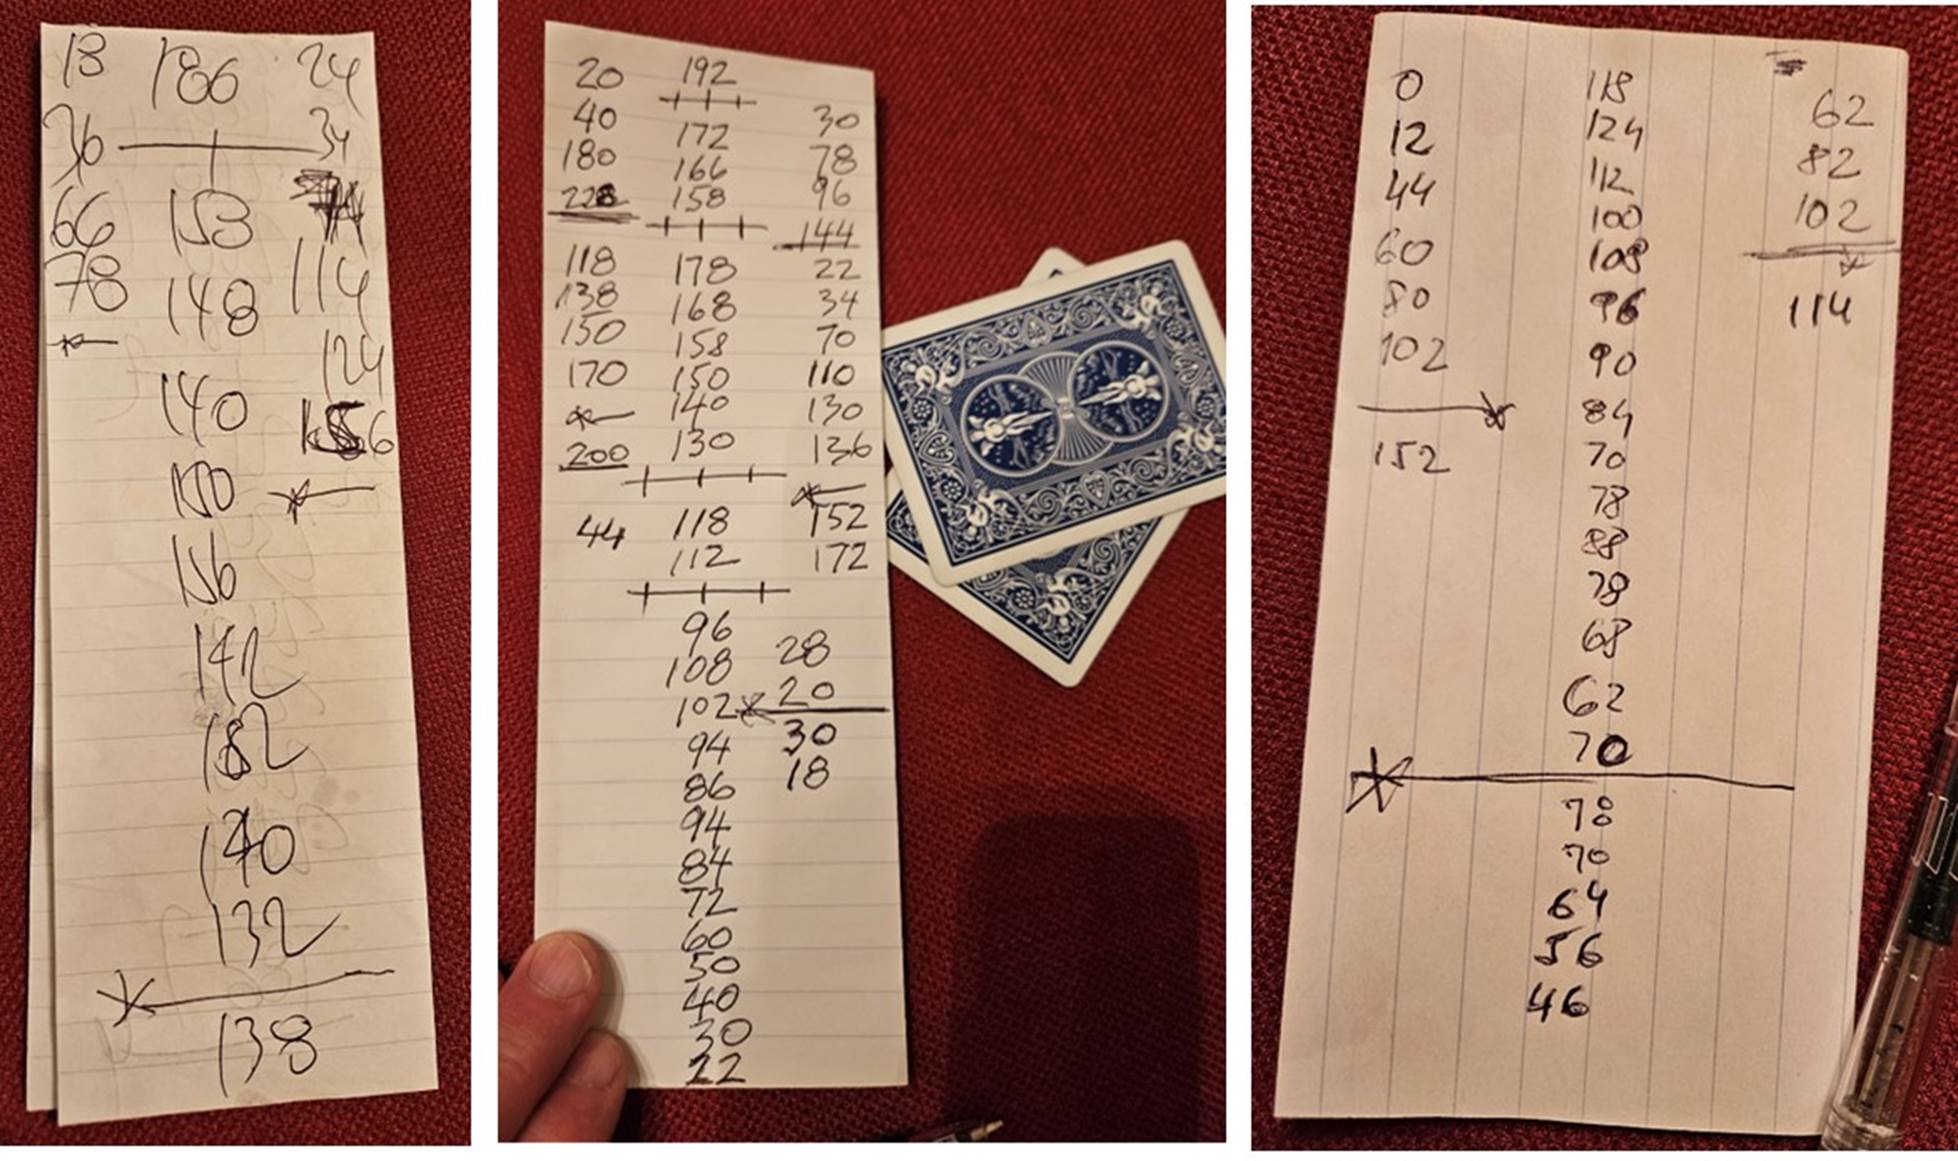 13 186 24
36 34
66 153
78 148 114
124
140
150
156
142
182
140
132
138
20 192
40 172 30
180 166 78
228 158 96
144
118 178 22
138 168 34
150 158 70
170 150 110
140 130
200 130 136
44 118 152
112 172
96
108 28
102 20
94 30
86 18
94
84
72
60
50
40
30
22
0 118 62
12 124 82
44 112 102
100
60 108
80 96 114
102 90
84
152 70
78
88
78
68
62
70
78
70
64
56
46